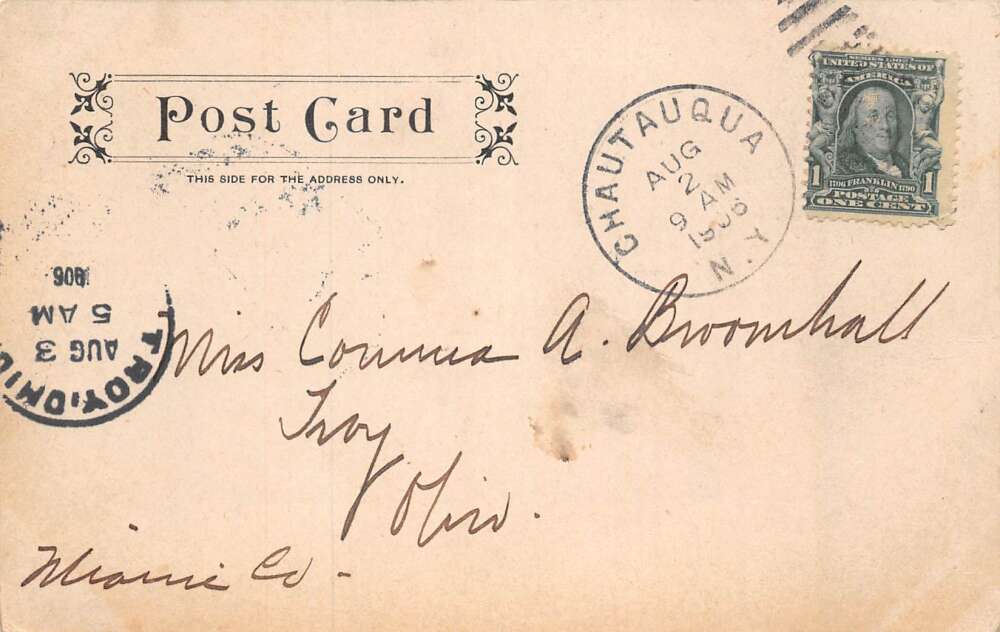 Post Card
THIS SIDE FOR THE ADDRESS ONLY.
CHAUTAUQUA
AUG
2
9 AM
1906
N.Y.
SERIES 1902
UNITED STATES OF
AMERICA
1706 FRANKLIN 1790
1 POSTAGE 1
ONE CENT
TROY, OHIO
AUG 3
5 AM
1906
Miss Corinna A. Broomhall
Troy
Ohio.
Miami Co-